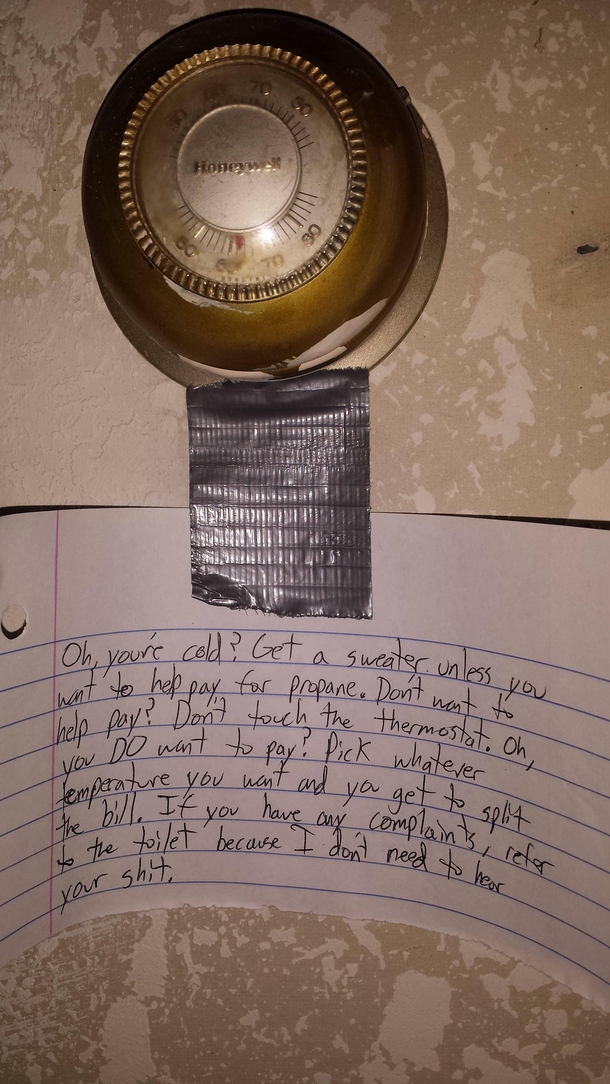 70
80
Honeywell
60
90
70
Oh, you're cold? Get a sweater unless you
want to help pay for propane. Don't want to
help pay? Don't touch the thermostat. Oh,
you DO want to pay? Pick whatever
temperature you want and you get to split
the bill. If you have any complaints, refer
to the toilet because I don't need to hear
your shit.